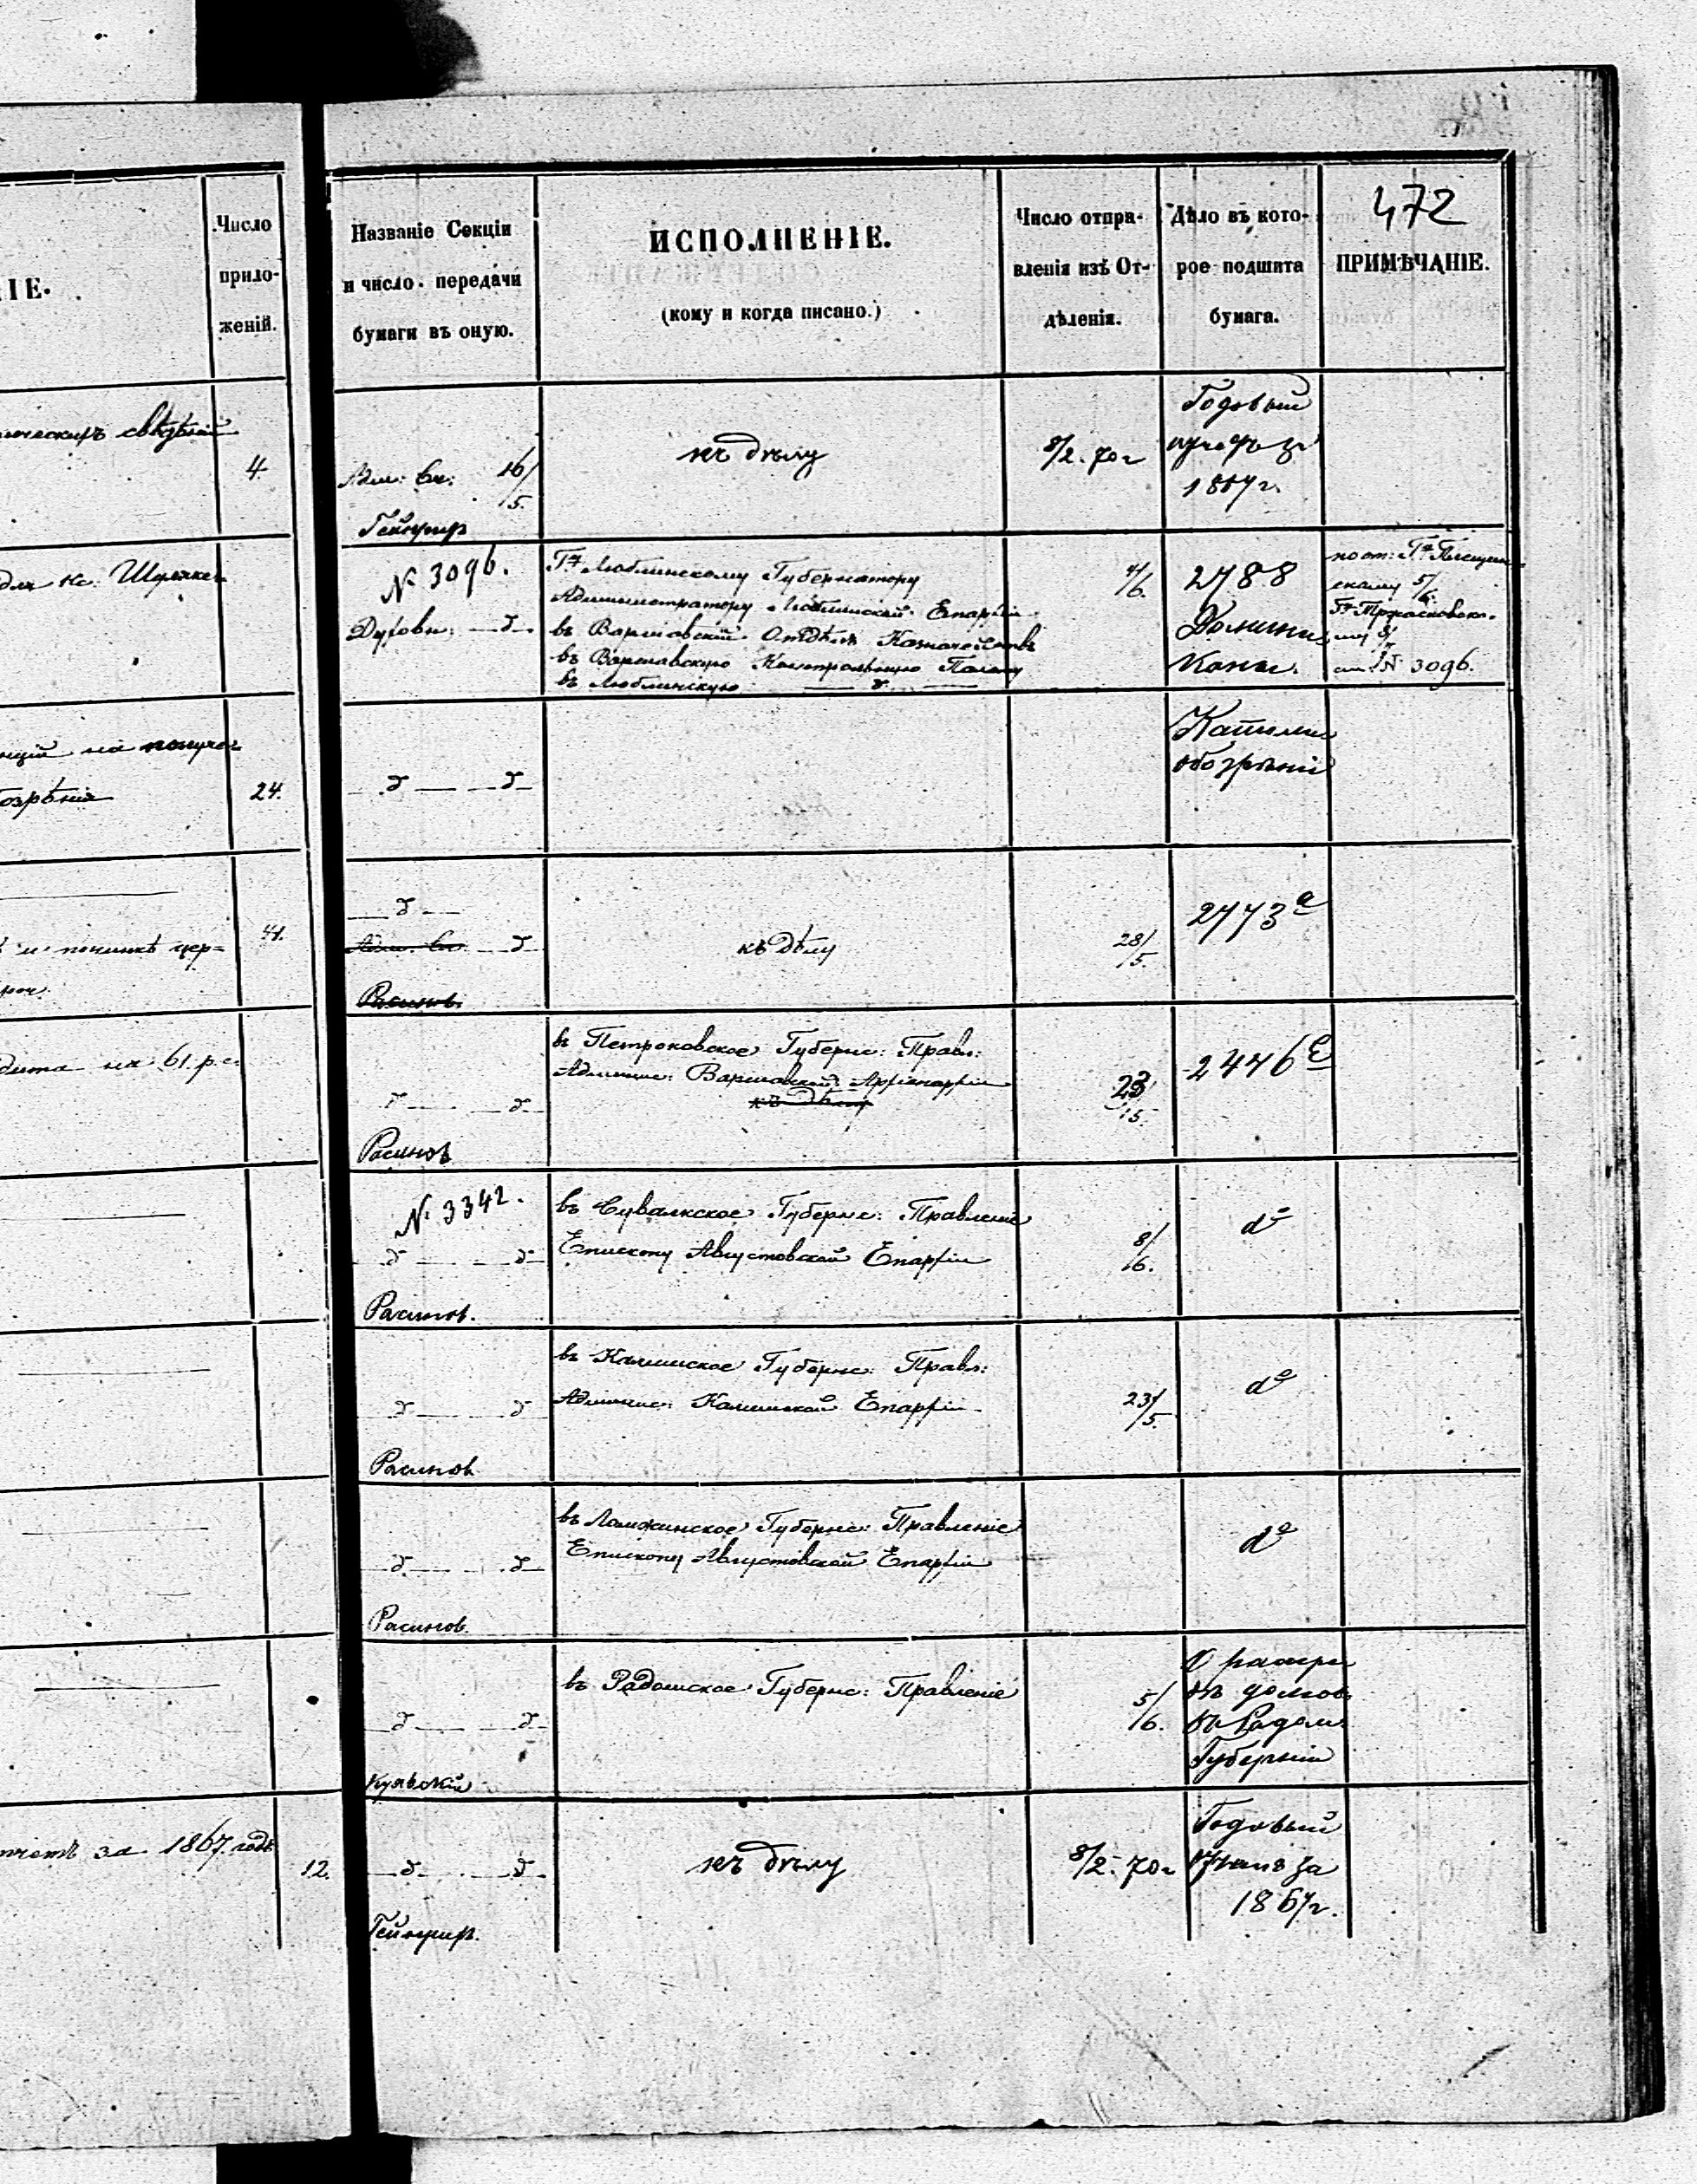 Число
прило-
женій.
ІЕ.
свѣдѣній
4.
для кс. Шуляке
на получе
озрѣнія
24.
и починкѣ цер-
41.
на 61. р. с.
за 1867. годъ
12.
472
Названіе Секціи
и число передачи
бумаги въ оную.
ИСПОЛНЕНІЕ.
(кому и когда писано.)
Число отпра-
вленія изъ От-
дѣленія.
Дѣло въ кото-
рое подшита
бумага.
ПРИМѢЧАНІЕ.
Адм: Ск: 16/5.
къ дѣлу
8/2. 70 г
Годовый
за
1867 г.
№ 3096.
Духовн: — д —
Гну Люблинскому Губернатору
Администратору Люблинской Епархіи
въ Варшавскій Отдѣлъ Казначейства
въ Варшавскую Контрольную Палату
въ Люблинскую — д. —
4/6.
2788
Домини
кане.
5/6
№ 3096.
д — д
Католич
обозрѣніе
— д —
Адм. Ск. — д —
Расиновъ.
къ Дѣлу
28/5.
2773 а
д — д
Расиновъ
въ Петроковское Губернс: Правл:
Админис: Варшавской Архіепархіи
къ дѣлу
23/5.
2446 е
№ 3342.
д — д
Расиновъ.
въ Сувалкское Губернс: Правленіе
Епископу Августовской Епархіи
8/6.
dº
д — д
Расиновъ
въ Калишское Губернс: Правл:
Админис: Калишской Епархіи
23/5.
dº
д — д
Расиновъ.
въ Ломжинское Губернс: Правленіе
Епископу Августовской Епархіи
dº
д — д
въ Радомское Губернс: Правленіе
5/6.
долгов
въ Радом.
Губерніи
— д — д —
къ дѣлу
8/2. 70 г
Годовый
за
1867 г.